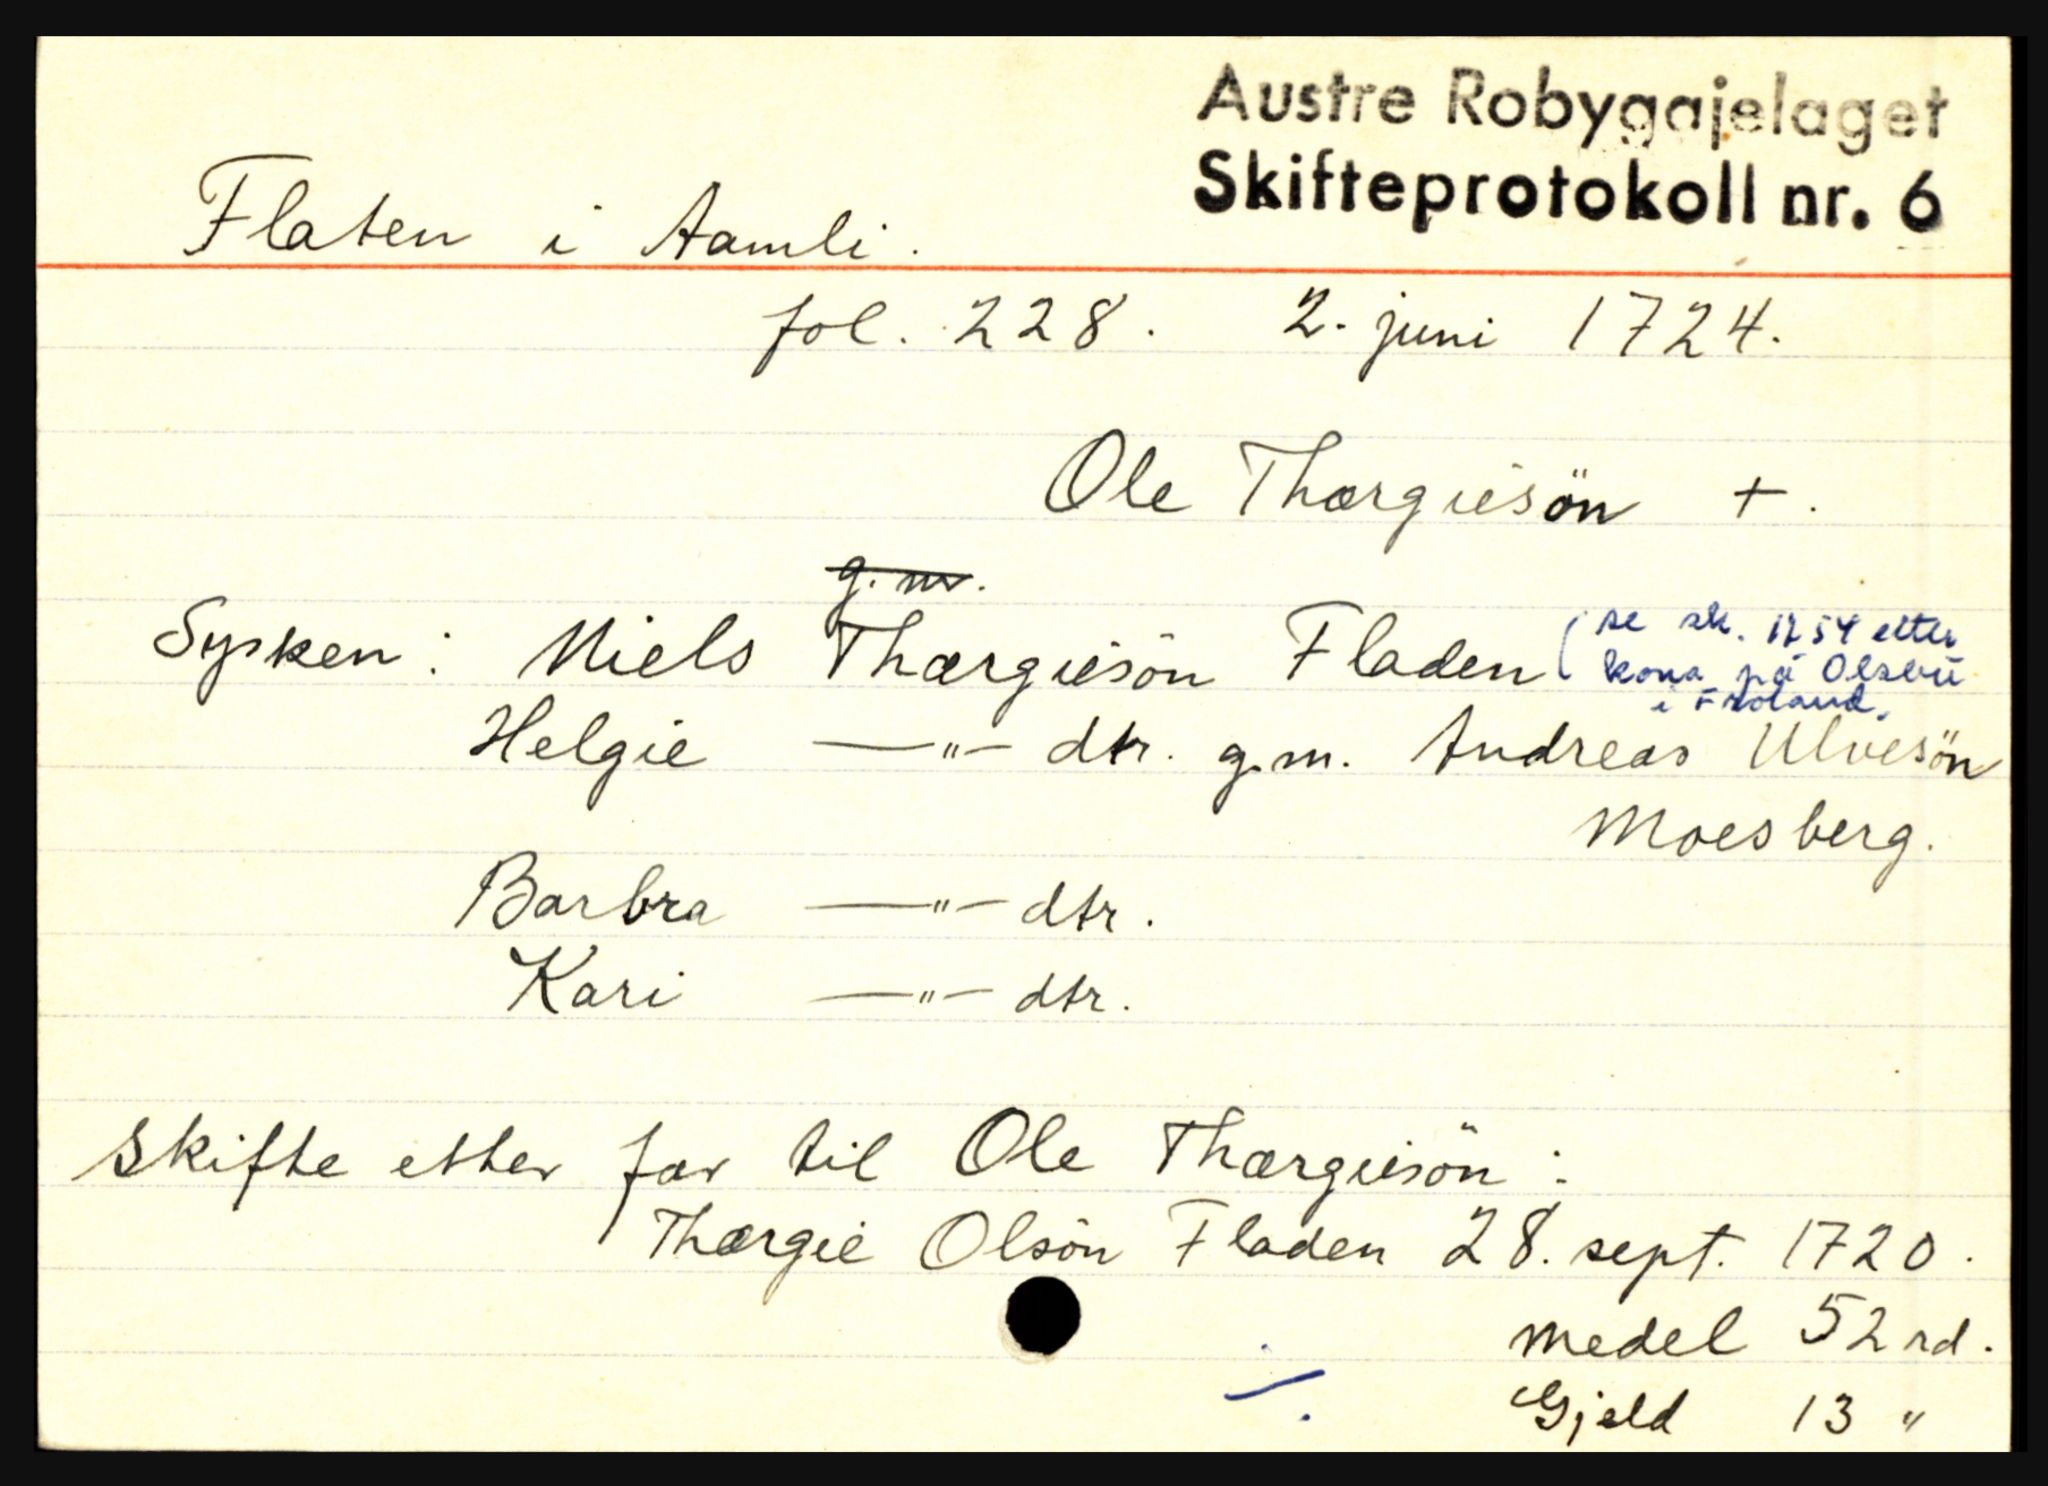 Austre Robygajelaget
Skifteprotokoll nr. 6
Flaten i Aamli.
fol. 228. 2. juni 1724.
Ole Thorgiesön +.
g.m.
Sysken: Niels Thorgiesön Fladen (se sk. 1754 etter
kona på Olsbu
i Froland.
Helgie —"— dtr. g.m. Andreas Ulvesön
Moesberg.
Barbra —"— dtr.
Kari —"— dtr.
Skifte etter far til Ole Thorgiesön:
Thorgie Olsön Fladen 28. sept. 1720.
medel 52 rd.
Gjeld 13 "